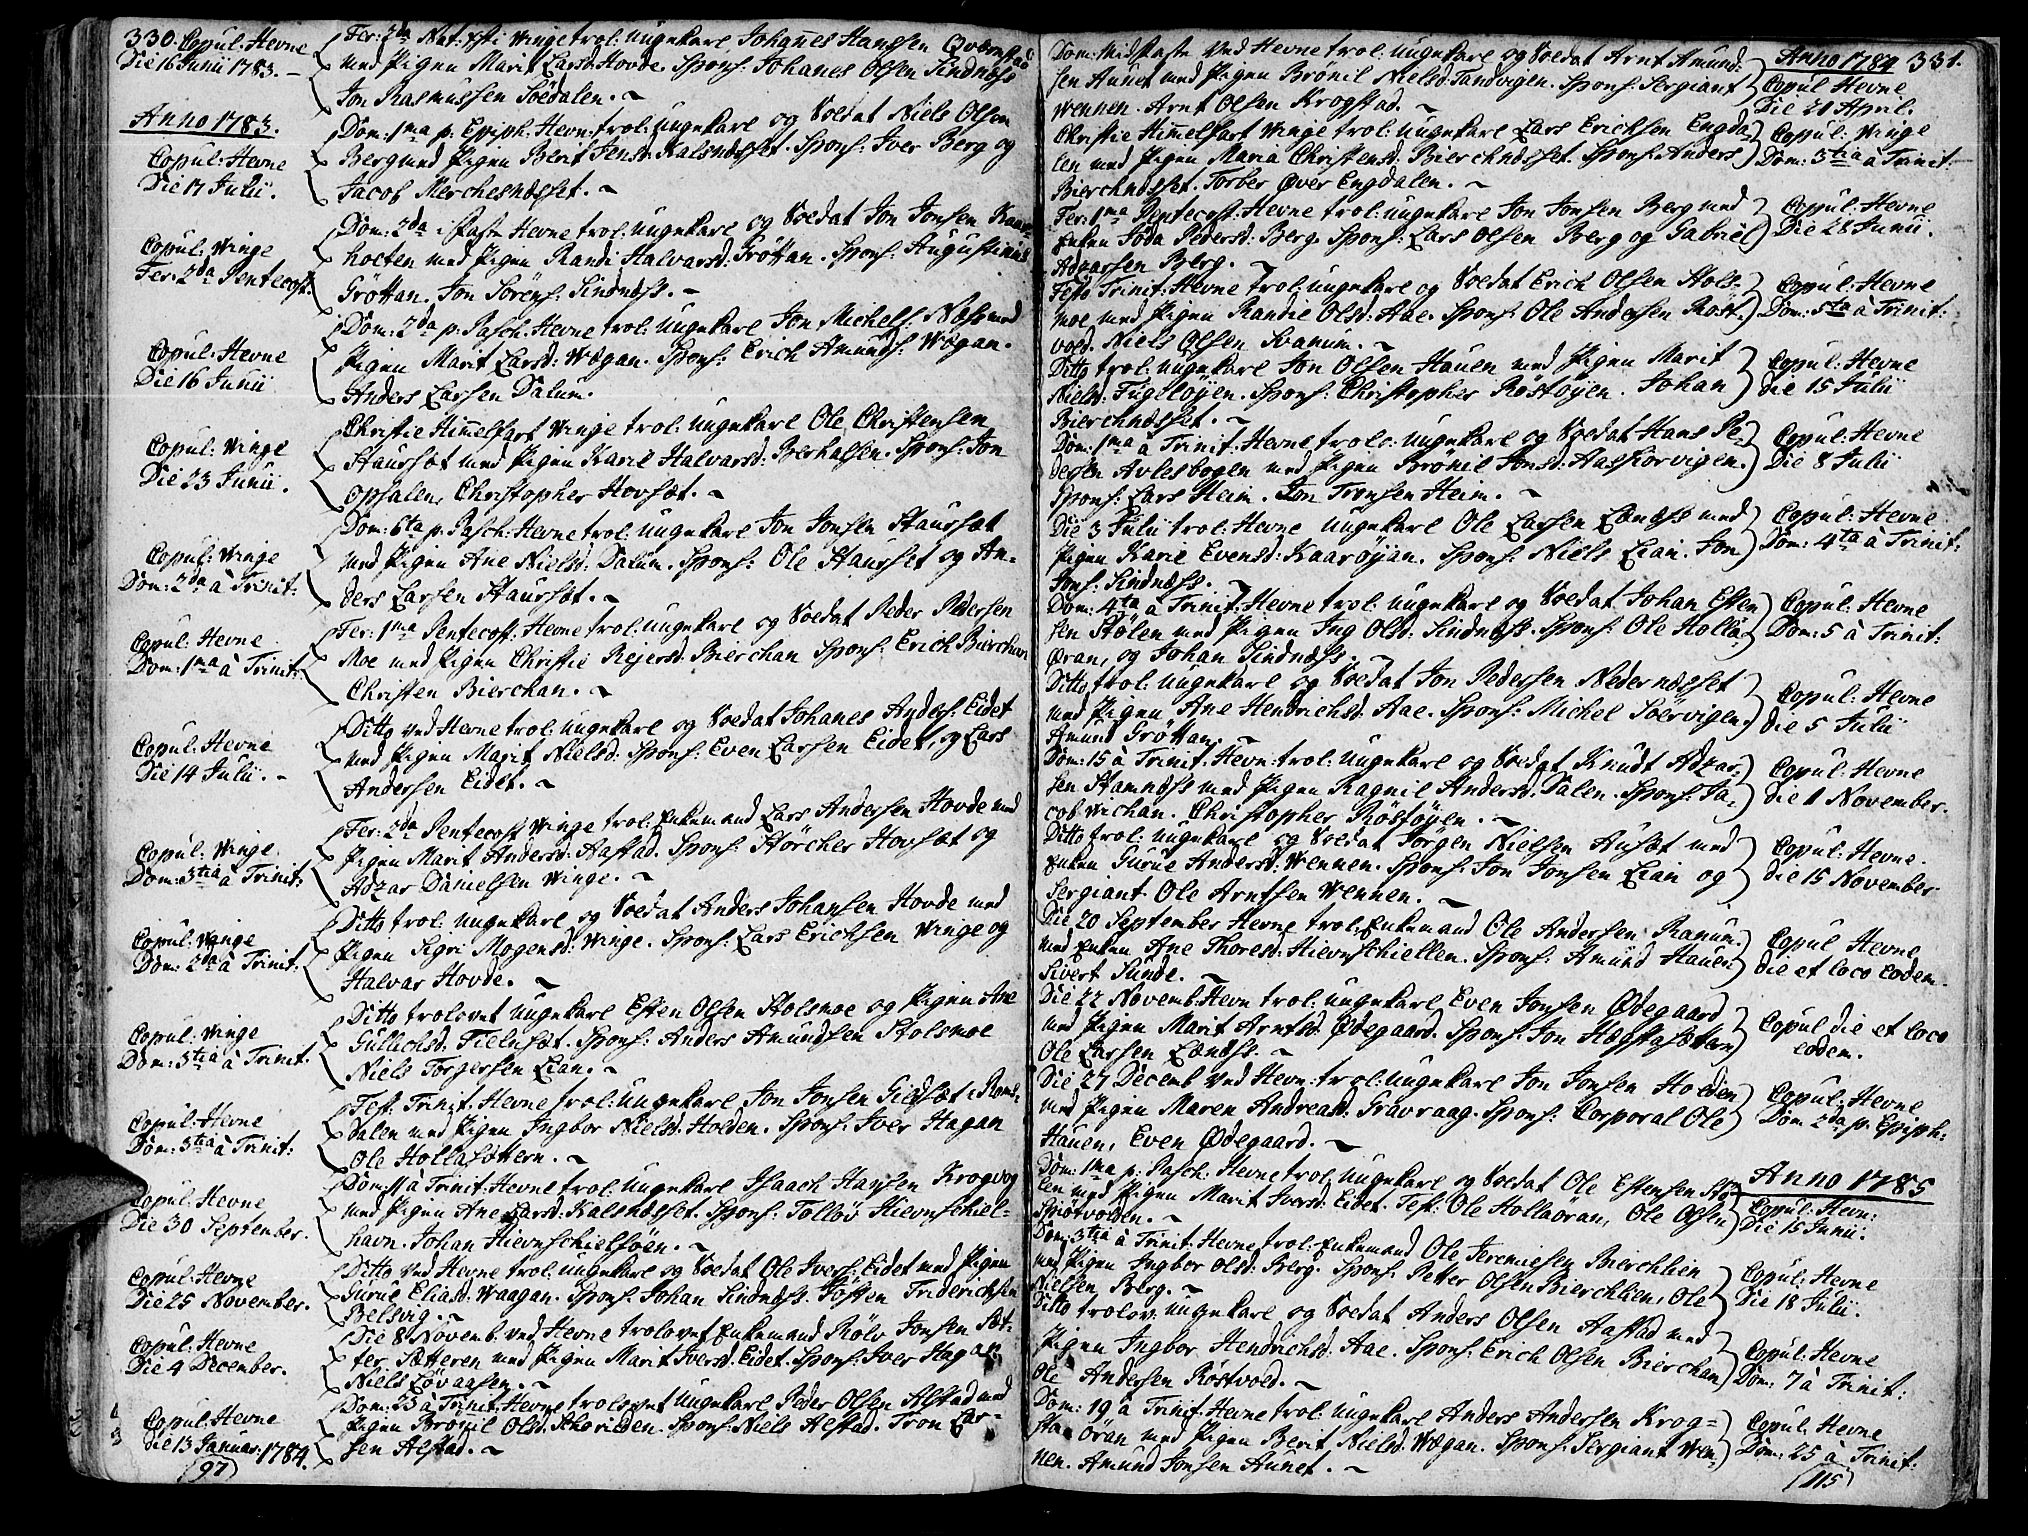 330. Copul: Hevne
Die 16 Junii 1783. –
Fer: 2da Nat: Xsti Vinge trol: Ungekarl Johannes Hansen
med Pigen Marit Larsd: Hovde. Spons: Johanes Olsen Sindnæss
Jon Rasmussen Söedalen. ~
Anno 1783.
Copul: Hevne
Die 17 Julii.
Dom: 1ma p: Epiph: Hevne trol: Ungekarl og Soldat Niels Olsen
Berg med Pigen Berit Jensd: Kalsnæsset. Spons: Iver Berg og
Jacob Merchesnæsset. ~
Copul: Vinge
Fer: 2da Pentecost.
Dom: 2da i Faste Hevne trol: Ungekarl og Soldat Jon Jonsen
holten med Pigen Randi Halvarsd: Gröttan. Spons: Augustinus
Gröttan. Jon Sörens: Sindnæss. ~
Copul: Hevne
Die 16 Junii
Dom: 2da p: Pasch: Hevne trol: Ungekarl Jon Michels: Næss med
Pigen Marit Larsd: Wægan. Spons: Erich Amunds: Wægan.
Anders Larsen Dalum.
Copul: Vinge
Die 23 Junii.
Christie Himmelfart Vinge trol: Ungekarl Ole Christensen
Staursæt med Pigen Karie Halvarsd: Berhalsen. Spons: Jon
Opsalen, Christopher Hovsæt. ~
Copul: Vinge
Dom: 2da à Trinit:
Dom: 6ta p: Pasch: Hevne trol: Ungekarl Jon Jonsen Staursæt
med Pigen Ane Nielsd: Dalum. Spons: Ole Staurset og An-
ders Larsen Staursæt. ~
Copul: Hevne
Dom: 1ma à Trinit:
Fer: 1ma Pentecost: Hevne trol: Ungekarl og Soldat Peder Pedersen
Moe med Pigen Christie Rejersd: Bierchan Spons: Erich Bierchan
Christen Bierchan. ~
Copul: Hevne
Die 14 Julii. –
Ditto ved Hevne trol: Ungekarl og Soldat Johanes Anders: Eidet
med Pigen Marit Nielsd: Spons: Even Larsen Eidet, og Lars
Andersen Eidet. ~
Copul: Vinge
Dom: 3tia à Trinit:
Fer: 2da Pentecost Vinge trol: Enkemand Lars Andersen Hovde med
Pigen Marit Andersd: Aastad. Spons: Störcher Hovsæt og
Adzar Danielsen Vinge. ~
Copul: Vinge
Dom: 2da à Trinit:
Ditto trol: Ungekarl og Soldat Anders Johansen Hovde med
Pigen Sigri Mogensd: Vinge. Spons: Lars Erichsen Vinge og
Halvar Hovde. ~
Copul: Vinge
Dom: 3tia à Trinit:
Ditto trolovet Ungekarl Esten Olsen Stolsmoe og Pigen Ane
Gullichsd: Fillusæt. Spons: Anders Amundsen Stolsmoe
Niels Torgersen Lian. ~
Copul: Hevne
Dom: 3tia à Trinit:
Fest. Trinit. Hevne trol: Ungekarl Jon Jonsen Gidsæt i Roms-
dalen med Pigen Ingbor Nielsd: Holden. Spons: Iver Hagan
Ole Hollasættern. ~
Copul: Hevne
Die 30 September.
Dom: 11 à Trinit: Hevne trol: Ungekarl Isaach Hansen Krogvog
med Pigen Ane Larsd: Kalsnæsset. Spons: Tollöv Hievnschiel-
havn. Johan Hievnschielsöen. ~
Copul: Hevne
Die 25 November.
Ditto ved Hevne trol: Ungekarl og Soldat Ole Ivers: Eidet med Pigen
Gurue Eliasd: Waagan. Spons: Johan Sindnæss. Jösten Friderichsen
Belsvig. ~
Copul: Hevne
Die 4 December.
Die 8 Novemb. ved Hevne trolovet Enkemand Rölv Jonsen Sæt-
ter. Sætteren med Pigen Marit Iversd: Eidet. Spons: Iver Hagan
Niels Lövaasen. ~
Copul: Hevne
die 13 Januar: 1784.
Dom: 23 à Trinit: Hevne trolovet Ungekarl Peder Olsen Alstad med
Pigen Brönil Olsd: Skorilden. Spons: Niels Alstad. Tron Lar-
sen Alstad. ~
(97)
Anno 1784 331.
Dom: Midfaste ved Hevne trol: Ungekarl og Soldat Arnt Amund-
sen Aunet med Pigen Brönil Nielsd: Sandvigen. Spons: Sergiant
Wennen. Arnt Olsen Krogstad. ~
Copul: Hevne
Die 20 April.
Christie Himmelfart Vinge trol: Ungekarl Lars Erichsen Engda-
len med Pigen Maria Christensd: Bierchnæsset. Spons: Anders
Bierchnæsset. Torber Över Engdalen. ~
Copul: Vinge
Dom: 3tia à Trinit:
Fer: 1ma Pentecost: Hevne trol: Ungekarl Jon Jonsen Berg med
Enken Joda Pedersd: Berg. Spons: Lars Olsen Berg og Gabriel
Adzarsen Berg. ~
Copul: Hevne
Die 28 Junii.
Festo Trinit: Hevne trol: Ungekarl og Soldat Erich Olsen Hols-
moe med Pigen Randie Olsd: Aae. Spons: Ole Andersen Röst-
vold. Niels Olsen Svanum. ~
Copul: Hevne
Dom: 5ta à Trinit:
Ditto trol: Ungekarl Jon Olsen Hauen med Pigen Marit
Nielsd: Fugelöyen. Spons: Christopher Röstöyen. Johan
Bierchnæsset. ~
Copul: Hevne
die 15 Julii
Dom: 1ma à Trinit: Hevne trolo: Ungekarl og Soldat Hans Pe-
dersen Avlesbogen med Pigen Brönil Jonsd: Aaeskorvigen.
Spons: Lars Heim. Jon Tronsen Heim. ~
Copul: Hevne
Die 8 Julii
Die 3 Julii trol: Hevne Ungekarl Ole Larsen Lænæss med
Pigen Karie Evensd: Kaaröyan. Spons: Niels Lian. Jon
Jons: Sindnæss.
Copul: Hevne
Dom: 4ta à Trinit:
Dom: 4ta à Trinit: Hevne trol: Ungekarl og Soldat Johan Esten
sen Stölen med Pigen Ing Olsd: Sindnæss. Spons: Ole Holla-
Öran, og Johan Sindnæss. ~
Copul: Hevne
Dom: 5 à Trinit:
Ditto trol: Ungekarl og Soldat Jon Pedersen Nedernæsset
med Pigen Ane Hendrichsd: Aae. Spons: Michel Söervigen.
Amund Gröttan. ~
Copul: Hevne
die 5 Julii
Dom: 15 à Trinit. Hevn: trol: Ungekarl og Soldat Knudt Adzar-
sen Stamnæss med Pigen Ragnil Andersd: Dalen. Spons: Ja-
cob Vichan. Christopher Röstöyen. ~
Copul: Hevne
die 1 November.
Ditto trol: Ungekarl og Soldat Jörgen Nielsen Ausæt med
Enken Gurue Andersd: Wennen. Spons: Jon Jonsen Lian og
Sergiant Ole Arntsen Wennen. ~
Copul: Hevne.
die 15 November
Die 20 September Hevne trol: Enkemand Ole Andersen Ranum
med Enken Ane Thoresd: Hievnschiellen. Spons: Amund Hauen
Sivert Sunde. ~
Copul Hevne
die et loco eodem.
Die 22 Novemb: Hevn trol: Ungekarl Even Jonsen Ödegaard
med Pigen Marit Arntsd: Ödegaard. Spons: Jon Hægstasættern
Ole Larsen Lænæss. ~
Copul die et loco
eodem.
Die 27 Decemb ved Hevn: trol: Ungekarl Jon Jonsen Holden
med Pigen Maren Andreasd: Gravraag. Spons: Corporal Ole
Hauen, Even Ödegaard. ~
Copul: Hevne
Dom 2da p: Epiph:
Anno 1785
Dom: 1ma p: Pasch: Hevne trol: Ungekarl og Soldat Ole Estensen Stö-
len med Pigen Marit Iversd: Eidet. Test: Ole Hollaöran, Ole Olsen
Spröetvolden. ~
Copul: Hevn:
Die 15 Junii.
Dom: 3tia à Trinit: Hevne trol: Enkemand Ole Jeremiesen Bierchlien
med Pigen Ingbor Olsd: Berg. Spons: Petter Olsen Bierchlien, Ole
Nielsen Berg. ~
Copul: Hevne
Die 18 Julii.
Ditto trolov: Ungekarl og Soldat Anders Olsen Aastad med
Pigen Ingbor Hendrichsd: Aae. Spons: Erich Olsen Bierchan
Ole Andersen Röstvold. ~
Copul: Hevne
Dom: 7 à Trinit:
Dom: 19 à Trinit: Hevne trol: Ungekarl Anders Andersen Krog=
sta öran med Pigen Berit Nielsd: Wægan. Spons: Sergiant Wen-
nen. Amund Jonsen Aunet. ~
Copul: Hevne
Dom: 25 à Trinit:
(115)